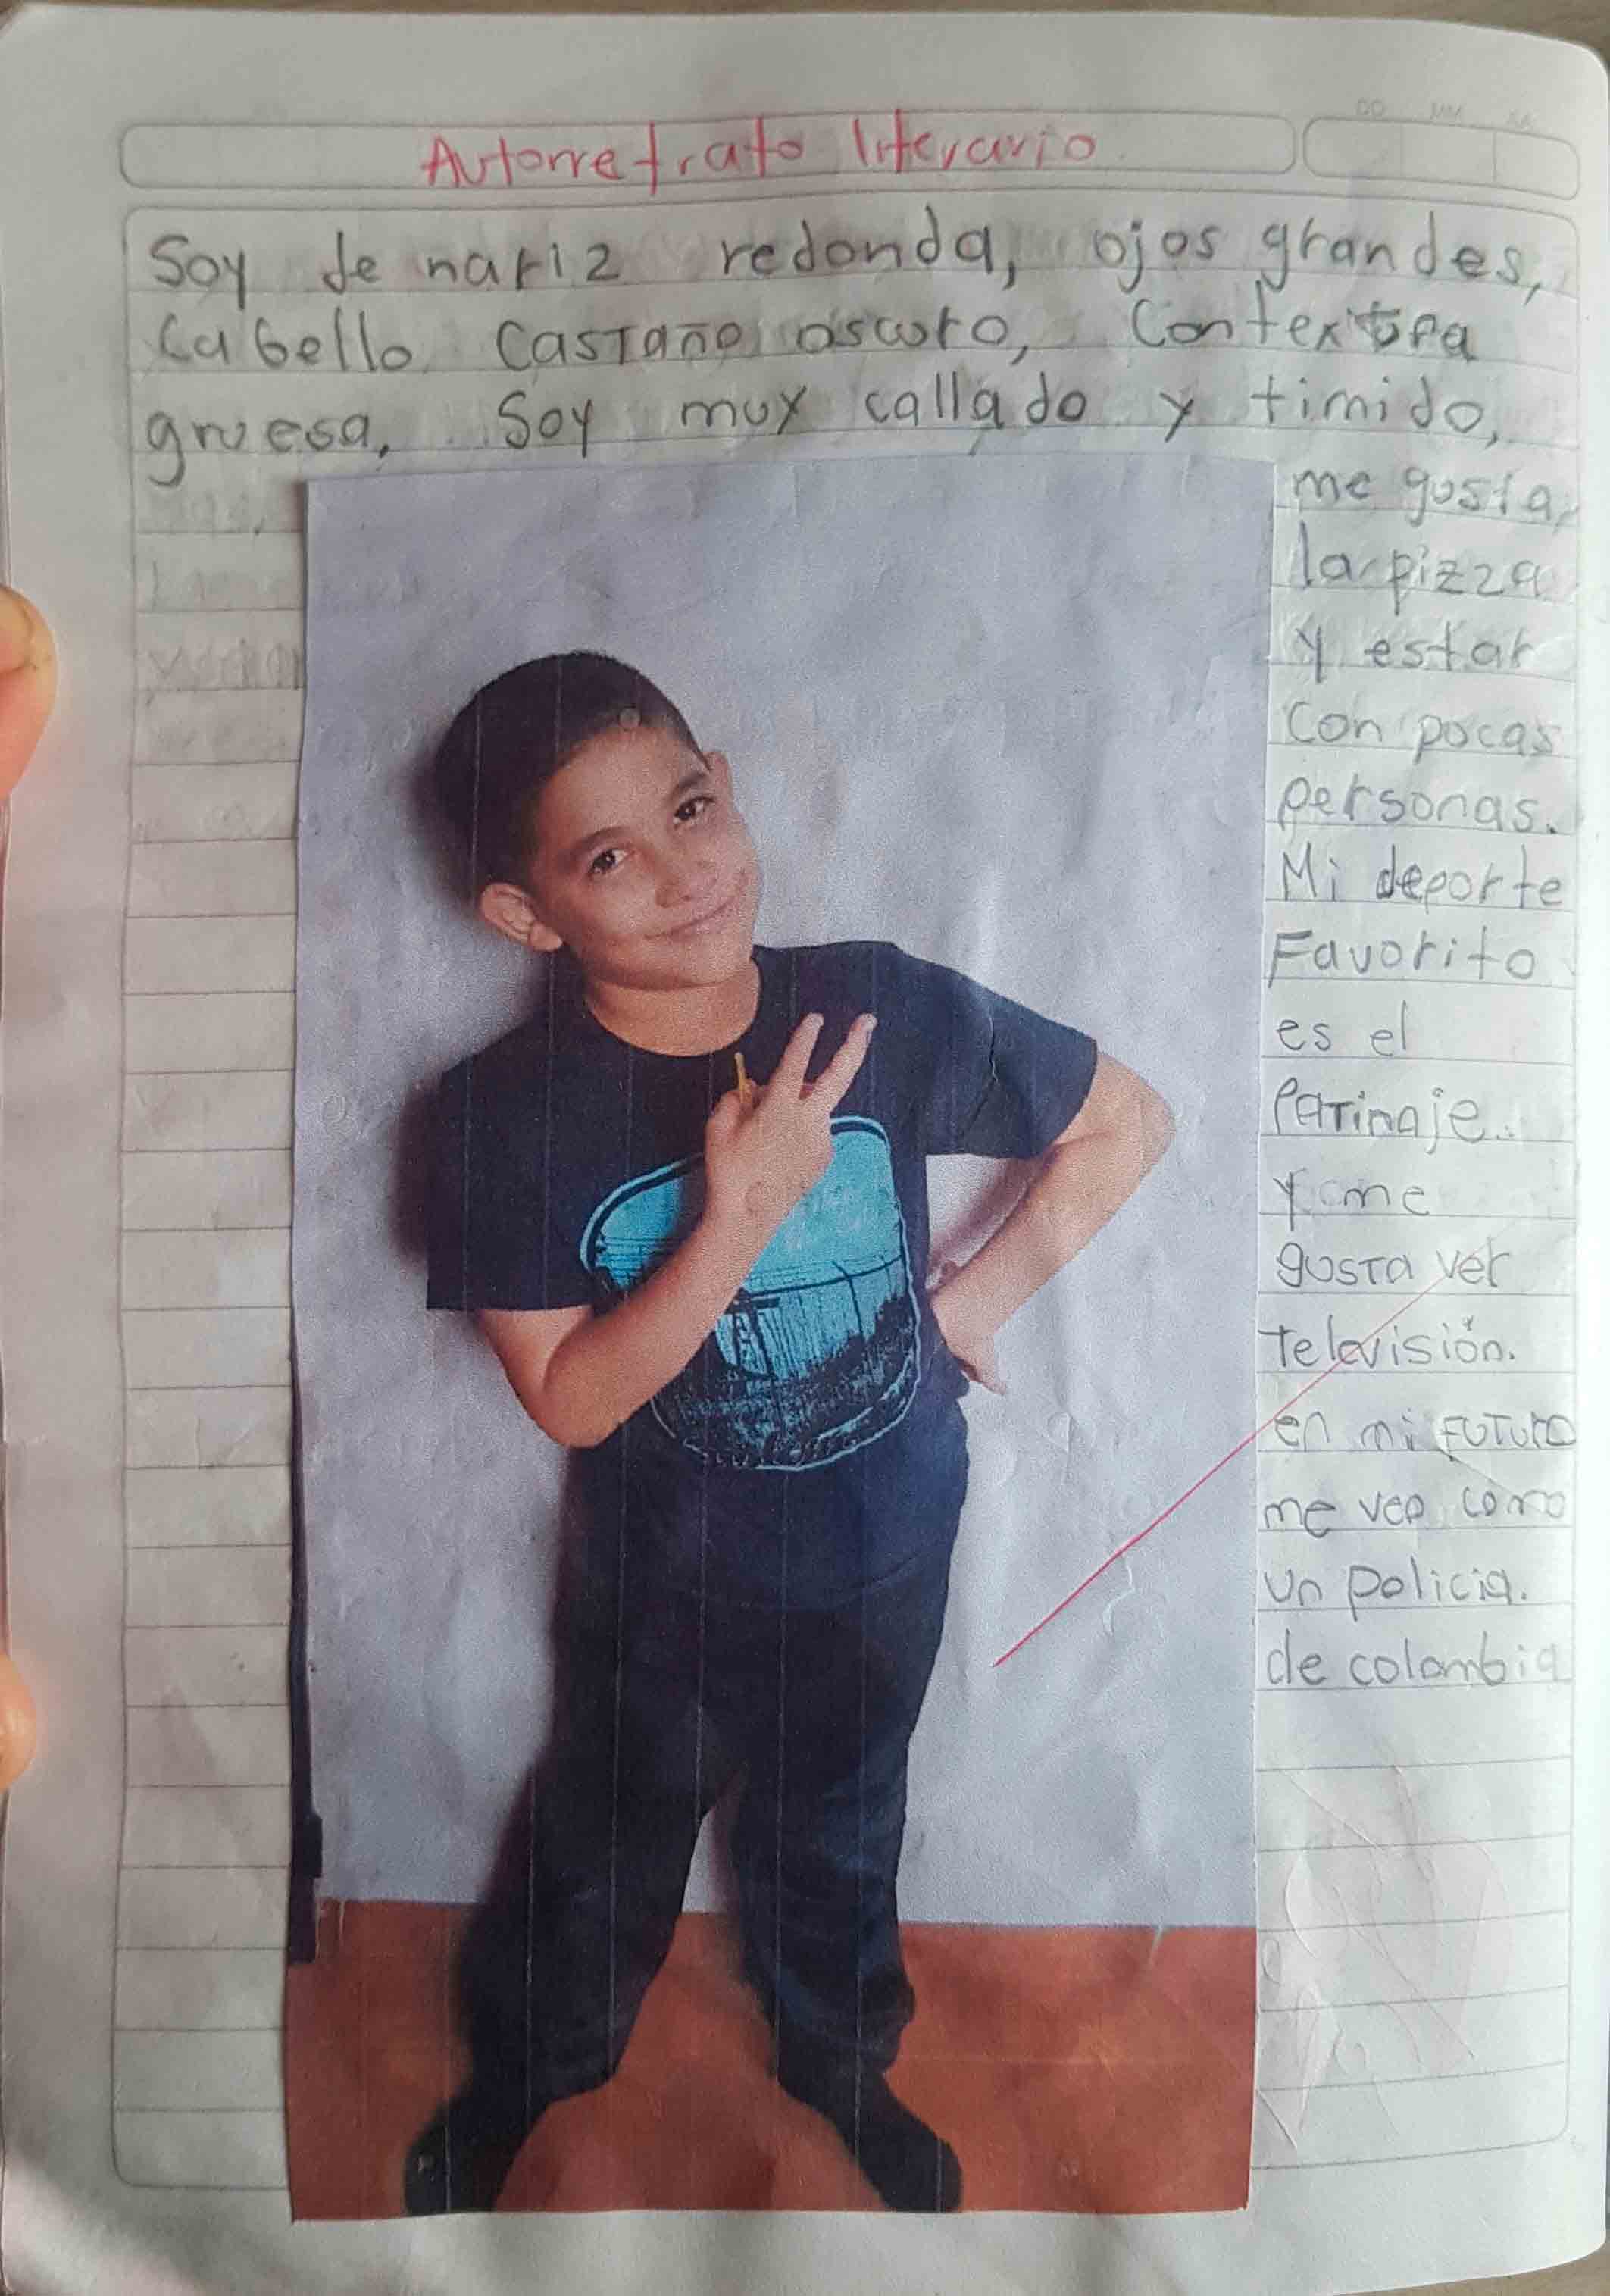 Autorretrato literario
Soy de nariz redonda, ojos grandes,
Cabello Castaño oscuro, Contextura
gruesa, Soy muy callado y timido,
me gusta
la pizza
y estar
Con pocas
personas.
Mi deporte
Favorito
es el
Patinaje.
y me
gusta ver
televisión.
en mi FUTURO
me veo como
un policia.
de colombia